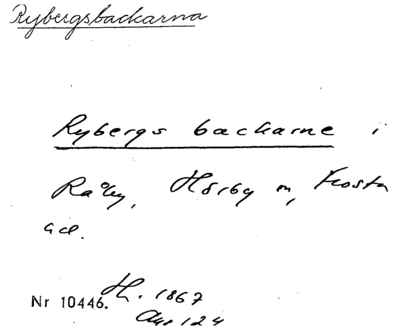 Rybergsbackarna
Rybergs backarne i
Råby, Hörby m, Frosta
hd.
Nr 10446. Hl. 1867
Avs 124